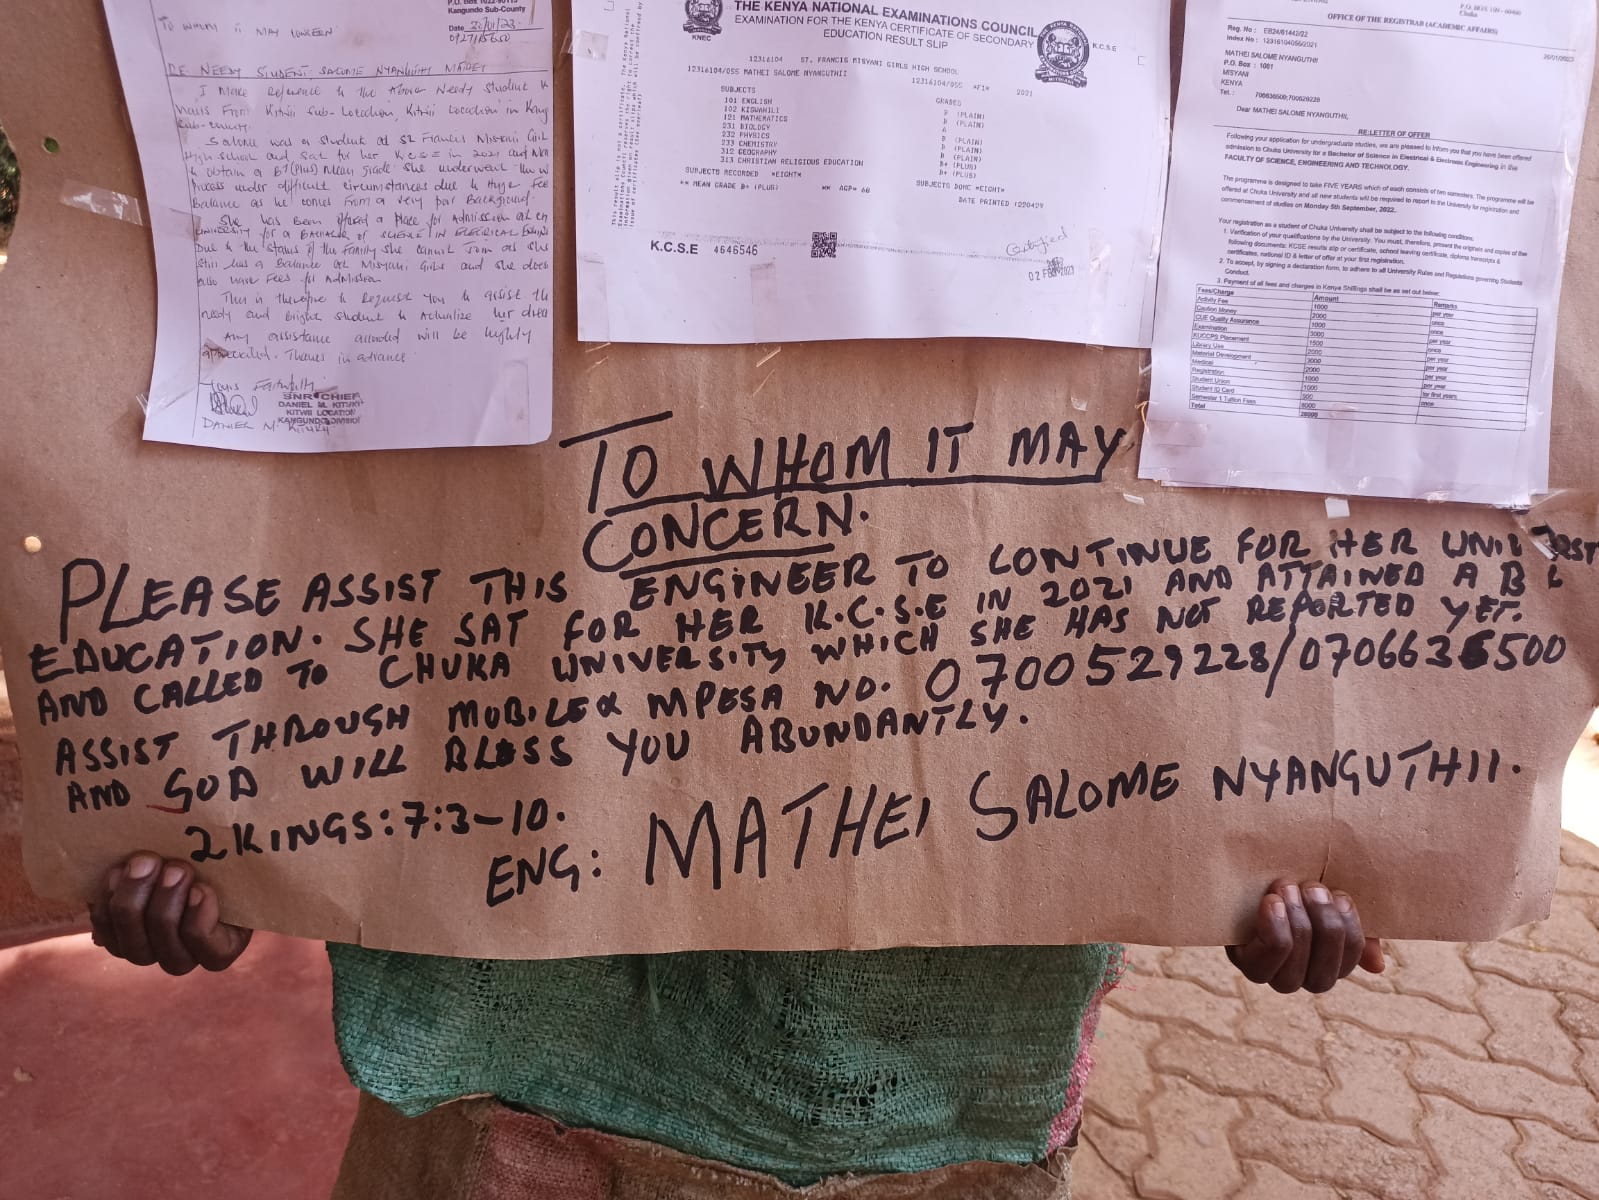 P.O. Box 1022-90115
Kangundo Sub-County
Date 22/01/23
TO WHOM IT MAY CONCERN
RE: NEEDY STUDENT SALOME NYANGUTHII MATHEI
I make reference to the above needy student
hails from Kitwii Sub-Location, Kitwii Location in
Sub-county
Salome was a student at St Francis Misyani Girls
High school and sat for her K.C.S.E in 2021 and
to obtain a B+(Plus) Mean grade. She underwent
process under difficult circumstances due to Huge Fee
Balance as he comes from a very poor Background.
She was been offered a place for Admission at
UNIVERSITY for a BACHELOR of SCIENCE IN ELECTRICAL
Due to the status of the Family she cannot Join as she
still has a Balance at Misyani Girls and she does
have fees for Admission
This is therefore to Request you to assist the
needy and bright student to Actualize her
Any assistance accorded will be highly
appreciated. Thanks in advance
Yours Faithfully
SNR CHIEF
DANIEL M. KITUKU
KITWII LOCATION
KANGUNDO DIVISION
DANIEL M. KITUKU
THE KENYA NATIONAL EXAMINATIONS COUNCIL
EXAMINATION FOR THE KENYA CERTIFICATE OF SECONDARY
EDUCATION RESULT SLIP
KNEC
K.C.S.E
12316104 ST. FRANCIS MISYANI GIRLS HIGH SCHOOL
12316104/055 MATHEI SALOME NYANGUTHII 12316104/055 *F1* 2021
SUBJECTS GRADES
101 ENGLISH B (PLAIN)
102 KISWAHILI B (PLAIN)
121 MATHEMATICS A
231 BIOLOGY B (PLAIN)
232 PHYSICS B (PLAIN)
233 CHEMISTRY B (PLAIN)
312 GEOGRAPHY B+ (PLUS)
313 CHRISTIAN RELIGIOUS EDUCATION B+ (PLUS)
SUBJECTS RECORDED *EIGHT* SUBJECTS DONE *EIGHT*
** MEAN GRADE B+ (PLUS) ** AGP= 68 DATE PRINTED
K.C.S.E 4646546
Certified
02 FEB 2023
P.O. BOX 109 - 60400
Chuka
OFFICE OF THE REGISTRAR (ACADEMIC AFFAIRS)
Reg. No: EB24/61442/22
Index No: 12316104055/2021
26/01/2023
MATHEI SALOME NYANGUTHII
P.O. Box : 1001
MISYANI
KENYA
Tel. : 706636509;700529228
Dear MATHEI SALOME NYANGUTHII,
RE:LETTER OF OFFER
Following your application for undergraduate studies, we are pleased to inform you that you have been offered
admission to Chuka University for a Bachelor of Science in Electrical & Electronic Engineering in the
FACULTY OF SCIENCE, ENGINEERING AND TECHNOLOGY.
The programme is designed to take FIVE YEARS which of each consists of two semesters. The programme will be
offered at Chuka University and all new students will be required to report to the University for registration and
commencement of studies on Monday 5th September, 2022.
Your registration as a student of Chuka University shall be subject to the following conditions:
1. Verification of your qualifications by the University. You must, therefore, present the originals and copies of the
following documents: KCSE results slip or certificate, school leaving certificate, diploma transcripts &
certificates, national ID & letter of offer at your first registration.
2. To accept, by signing a declaration form, to adhere to all University Rules and Regulations governing Students
Conduct.
3. Payment of all fees and charges in Kenya Shillings shall be as set out below:
Fees/Charge Amount Remarks
Activity Fee 1000 per year
Caution Money 2000 once
CUE Quality Assurance 1000 per year
Examination 3000 per year
KUCCPS Placement 1500 once
Library Use 2000 per year
Material Development 3000 per year
Medical 2000 per year
Registration 1000 per year
Student Union 1000 per year
Student ID Card 500 once
Semester 1 Tuition Fees 8000
Total
TO WHOM IT MAY
CONCERN.
PLEASE ASSIST THIS ENGINEER TO CONTINUE FOR HER
EDUCATION. SHE SAT FOR HER K.C.S.E IN 2021 AND ATTAINED A B
AND CALLED TO CHUKA UNIVERSITY WHICH SHE HAS NOT REPORTED YET.
ASSIST THROUGH MOBILE & MPESA NO. 0700529228/0706636500
AND GOD WILL BLESS YOU ABUNDANTLY.
2 KINGS:7:3-10.
ENG: MATHEI SALOME NYANGUTHII.